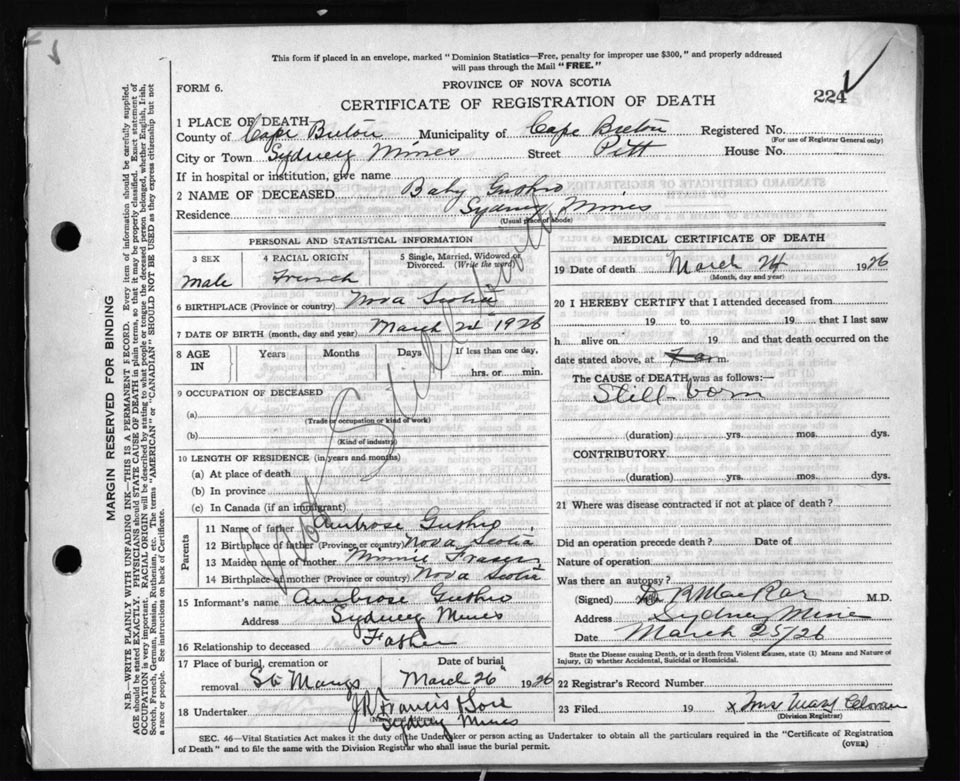 This form if placed in an envelope, marked "Dominion Statistics—Free, penalty for improper use $300," and properly addressed
will pass through the Mail "FREE."
FORM 6.
PROVINCE OF NOVA SCOTIA
CERTIFICATE OF REGISTRATION OF DEATH
224
MARGIN RESERVED FOR BINDING
N.B.—WRITE PLAINLY WITH UNFADING INK—THIS IS A PERMANENT RECORD. Every item of information should be carefully supplied.
AGE should be stated EXACTLY. PHYSICIANS should STATE CAUSE OF DEATH in plain terms, so that it may be properly classified. Exact statement of
OCCUPATION is very important. RACIAL ORIGIN will be described by stating to what people or tongue the deceased person belonged, whether English, Irish,
Scotch, French, German, Russian, Ruthenian, etc. The terms "AMERICAN" or "CANADIAN" SHOULD NOT BE USED as they express citizenship but not
a race or people. See instructions on back of Certificate.
1 PLACE OF DEATH
County of Cape Breton Municipality of Cape Breton Registered No.
(For use of Registrar General only)
City or Town Sydney Mines Street Pitt House No.
If in hospital or institution, give name
2 NAME OF DECEASED Baby Gushro
Residence Sydney Mines
(Usual place of abode)
PERSONAL AND STATISTICAL INFORMATION
3 SEX 4 RACIAL ORIGIN 5 Single, Married, Widowed or Divorced. (Write the word)
Male French
6 BIRTHPLACE (Province or country) Nova Scotia
7 DATE OF BIRTH (month, day and year) March 1926
8 AGE IN Years Months Days If less than one day,
hrs. or min.
9 OCCUPATION OF DECEASED
(a)
(Trade or occupation or kind of work)
(b)
(Kind of industry)
Still born
10 LENGTH OF RESIDENCE (in years and months)
(a) At place of death
(b) In province
(c) In Canada (if an immigrant)
Parents
11 Name of father Ambrose Gushro
12 Birthplace of father (Province or country) Nova Scotia
13 Maiden name of mother Minnie Fraser
14 Birthplace of mother (Province or country) Nova Scotia
15 Informant's name Ambrose Gushro
Address Sydney Mines
16 Relationship to deceased Father
17 Place of burial, cremation or removal St Marys Date of burial March 26 1926
18 Undertaker J R Francis & Son
(Name and address)
Sydney Mines
MEDICAL CERTIFICATE OF DEATH
19 Date of death March 24 1926
(Month, day and year)
20 I HEREBY CERTIFY that I attended deceased from
19 to 19 that I last saw
h alive on 19 and that death occurred on the
date stated above, at m.
The CAUSE of DEATH was as follows:—
Still-born
(duration) yrs. mos. dys.
CONTRIBUTORY
(duration) yrs. mos. dys.
21 Where was disease contracted if not at place of death?
Did an operation precede death? Date of
Nature of operation
Was there an autopsy?
(Signed) MacRae M.D.
Address Sydney Mine
Date March 25/26
State the Disease causing Death, or in death from Violent Causes, state (1) Means and Nature of
Injury, (2) whether Accidental, Suicidal or Homicidal.
22 Registrar's Record Number
23 Filed 19 x Mrs Mary
(Division Registrar)
SEC. 46—Vital Statistics Act makes it the duty of the Undertaker or person acting as Undertaker to obtain all the particulars required in the "Certificate of Registration
of Death" and to file the same with the Division Registrar who shall issue the burial permit.
(OVER)